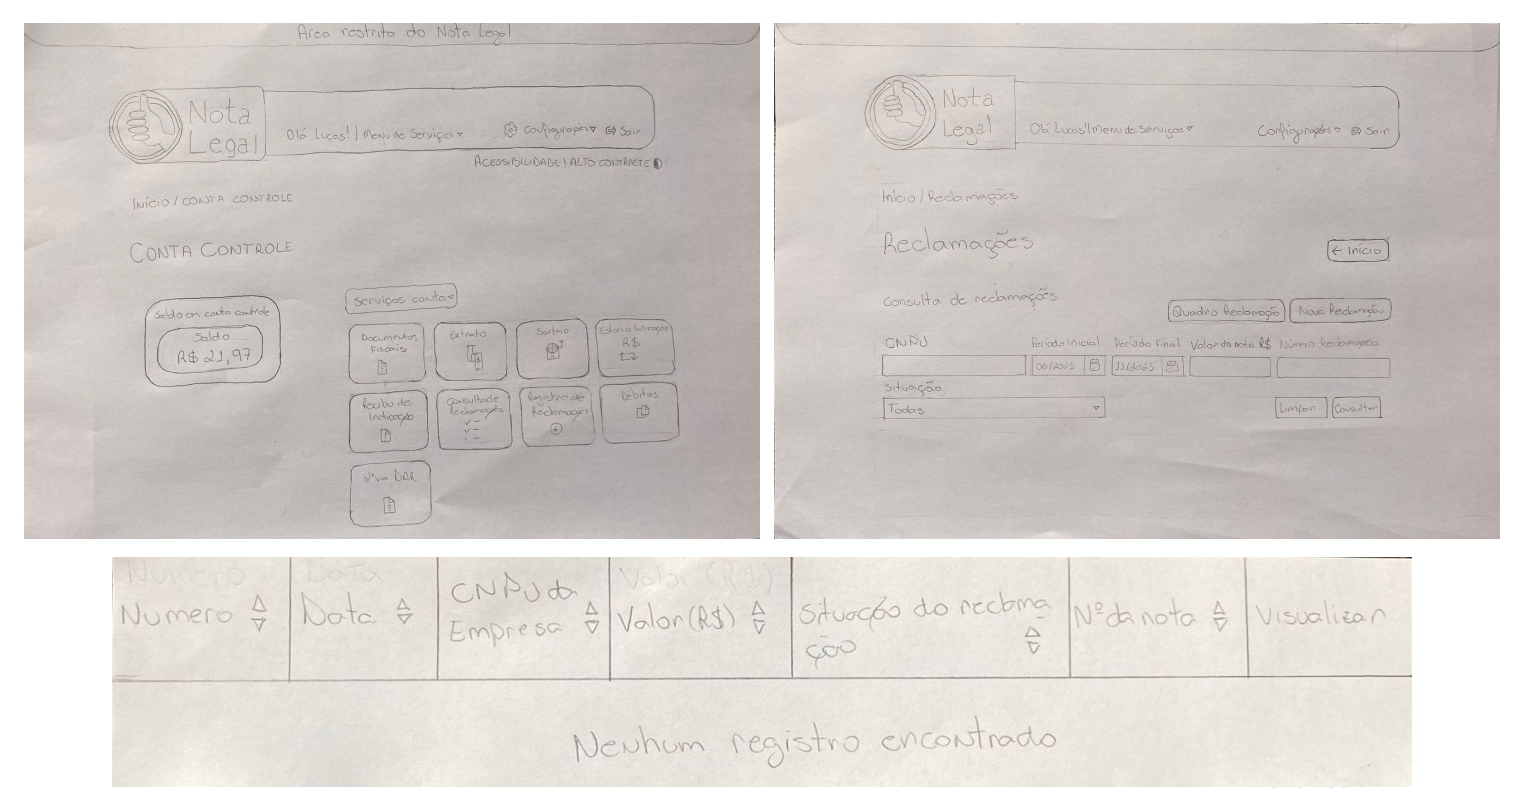 Area restrita do Nota Legal
Nota
Legal
Olá Lucas! | Menu de Serviços
Configurações
Sair
ACESSIBILIDADE | ALTO CONTRASTE
INÍCIO / CONTA CONTROLE
CONTA CONTROLE
Saldo em conta controle
Saldo
R$ 21,97
Serviços conta
Documentos
Fiscais
Extrato
Sorteio
Estorno Indicação
R$
Recibo de
Indicação
Consulta de
Reclamações
Registro de
Reclamações
Débitos
2ª via DAR
Nota
Legal
Olá Lucas! | menu de Serviços
Configurações
Sair
Início / Reclamações
Reclamações
← Início
Consulta de reclamações
Quadro Reclamação
Nova Reclamação
CNPJ
Período Inicial
Período Final
Valor da nota R$
Número Reclamação
06/2023
11/2023
Situação
Todas
Limpar
Consultar
Numero
Data
CNPJ da
Empresa
Valor (R$)
Situação do reclama
ção
Nº da nota
Visualizar
Nenhum registro encontrado